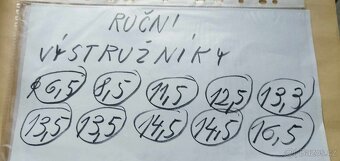 RUČNÍ
VÝSTRUŽNÍKY
ø6,5 8,5 11,5 12,5 13,3
13,5 13,5 14,5 14,5 16,5